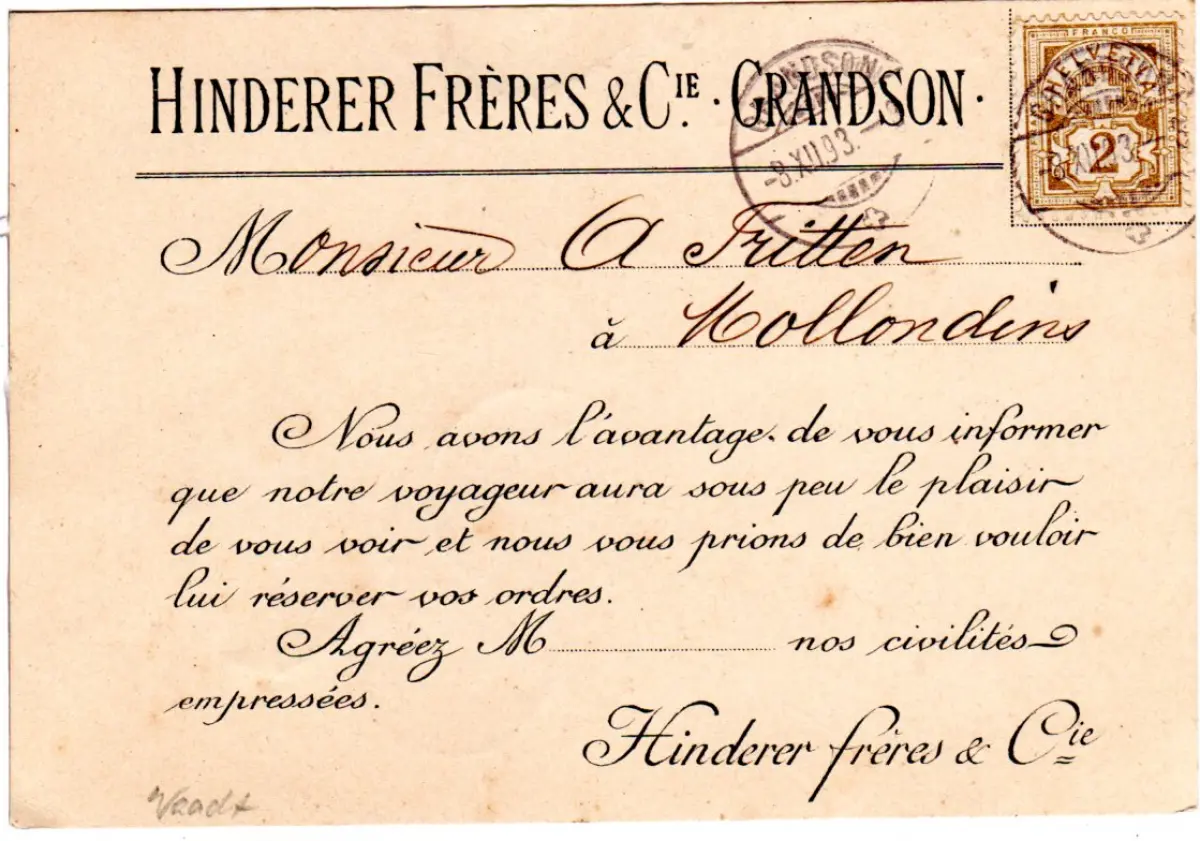 HINDERER FRÈRES & CIE. · GRANDSON ·
GRANDSON
-8.XII.93.
FRANCO
HELVETIA
2
-8.XII.93
Monsieur A Fritten
à Mollondins
Nous avons l'avantage de vous informer
que notre voyageur aura sous peu le plaisir
de vous voir et nous vous prions de bien vouloir
lui réserver vos ordres.
Agréez M nos civilités
empressées.
Hinderer frères & Cie
Waadt